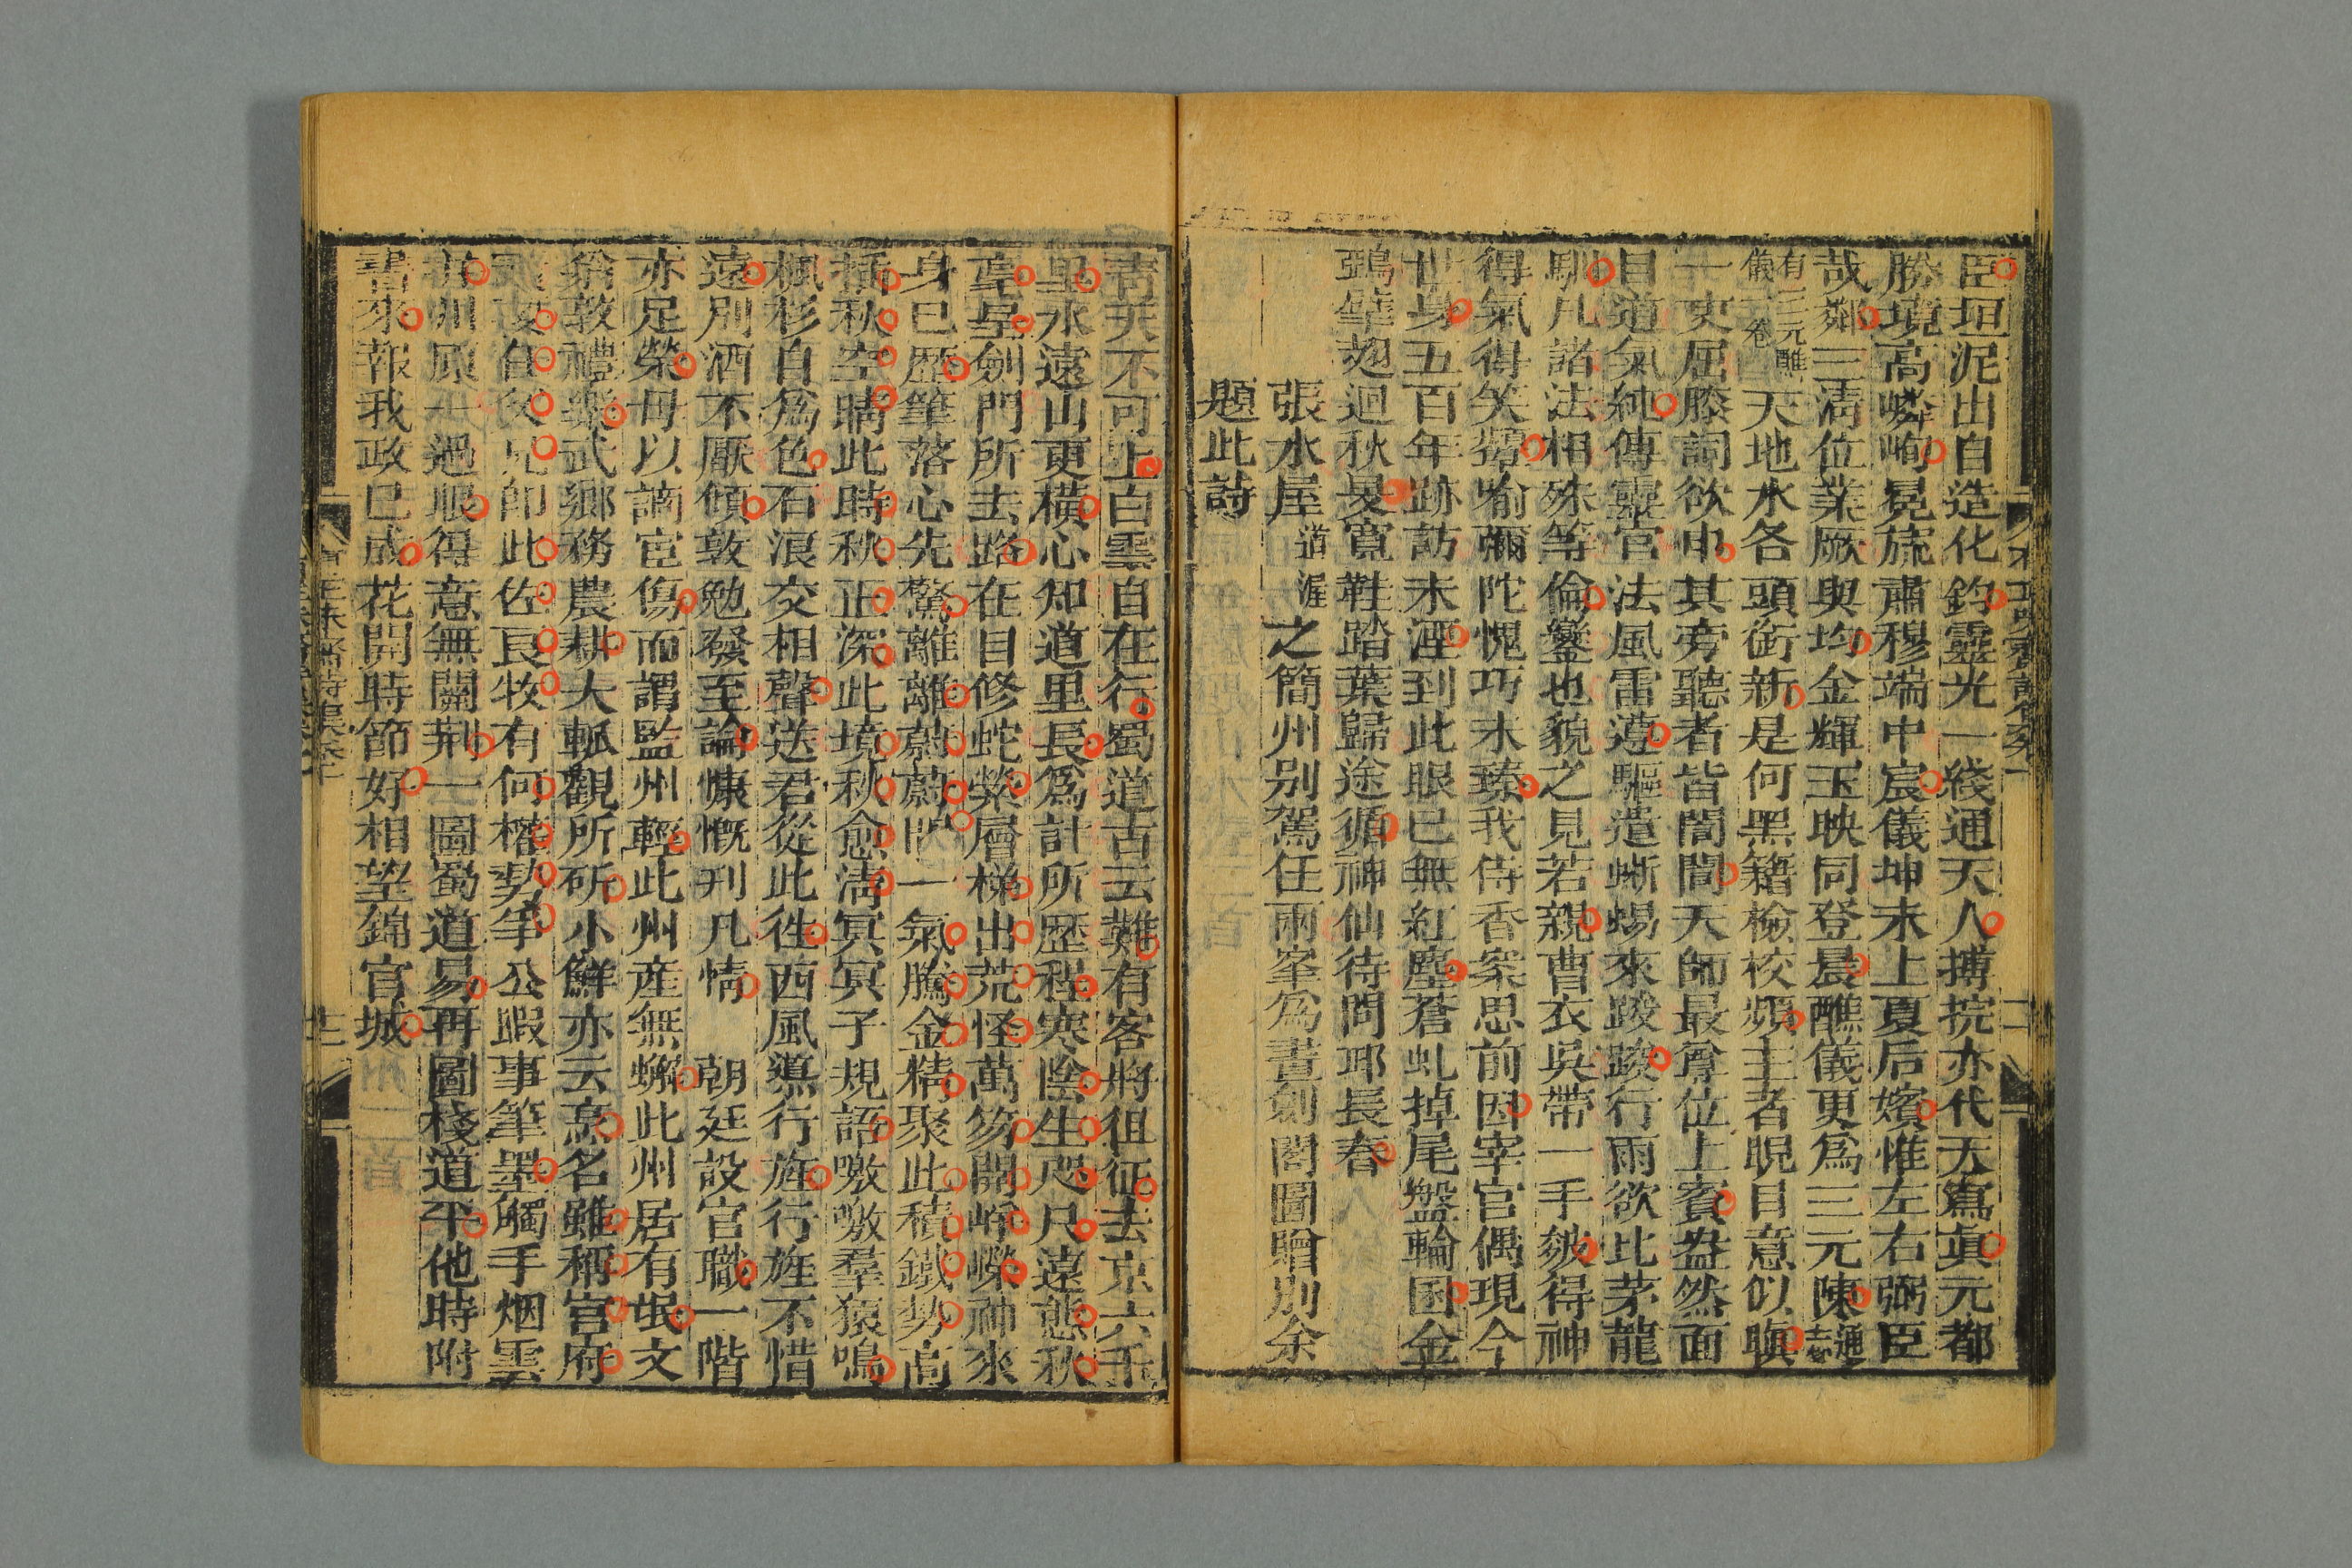 臣垣泥出自造化鈞靈光一綫通天人摶捖亦代天寫眞元都
勝境高嶙峋冕旒肅穆端中宸儀坤未上夏后嬪惟左右弼臣
哉鄰三淸位業厥與均金輝玉映同登晨醮儀更爲三元陳通志
有三元醮儀一卷天地水各頭銜新是何黑籍檢校頻主者睨目意似瞋
一吏屈膝詞欲申其旁聽者皆誾誾天師最尊位上賓盎然面
目道氣純傳靈官法風雷遵驅遣蜥蜴來踆踆行雨欲比茅龍
馴凡諸法相殊等倫鑾也貌之見若親曹衣吳帶一手皴得神
得氣得笑顰喻彌陀愧巧未臻我侍香案思前因宰官偶現今
世身五百年跡訪未湮到此眼已無紅塵蒼虬掉尾盤輪囷金
鵶 翅迴秋旻寬鞋踏葉歸途循神仙待問邛長春
張水屋道渥之簡州别駕任雨峯爲畫劍閣圖贈別余
題此詩
靑天不可上白雲自在行蜀道古云難有客將徂征去京六千
里水遠山更橫心知道里長爲計所歷程寒陰生咫尺遠態秋
毫呈劍門所去路在目修蛇縈層梯出荒怪萬笏開崢嶸神來
身已歷筆落心先驚離離蔚蔚 一氣騰金精聚此積鐵勢高
插秋空晴此時秋正深此境秋愈淸冥冥子規語噭噭羣猿鳴
楓杉自爲色石浪交相聲送君從此徃西風導行旌行旌不惜
遠別酒不厭傾敦勉發至論慷慨刋凡情 朝廷設官職一階
亦足榮毋以謫宦傷而謂監州輕此州產無蠏此州居有氓文
翁敦禮樂武鄉務農耕大瓠觀所斫小鮮亦云烹名雖稱官府
 父兄即此佐良牧有何權勢爭公暇事筆墨觸手烟雲
 一過眼得意無關荆一圖蜀道易再圖棧道平他時附
書來報我政已成花開時節好相望錦官城